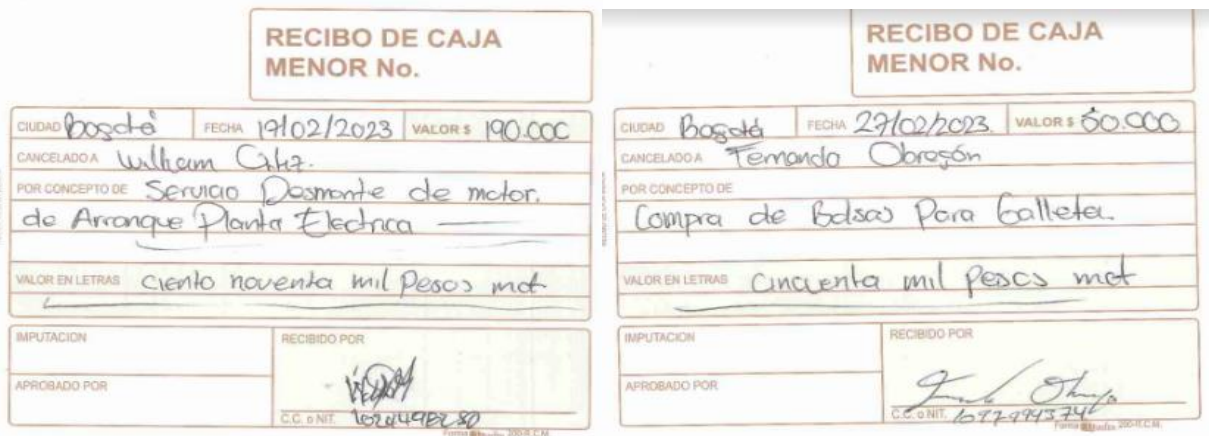 RECIBO DE CAJA
MENOR No.
CIUDAD Bogotá FECHA 19/02/2023 VALOR $ 190.000
CANCELADO A William Ortiz.
POR CONCEPTO DE Servicio Desmonte de motor.
de Arranque Planta Electrica
VALOR EN LETRAS ciento noventa mil Pesos mct
IMPUTACION
RECIBIDO POR
APROBADO POR
C.C. o NIT.
RECIBO DE CAJA
MENOR No.
CIUDAD Bogotá FECHA 27/02/2023 VALOR $ 50.000
CANCELADO A Fernando Obregón
POR CONCEPTO DE
Compra de Bolsas Para Galleta.
VALOR EN LETRAS Cincuenta mil Pesos mct
IMPUTACION
RECIBIDO POR
APROBADO POR
C.C. o NIT.